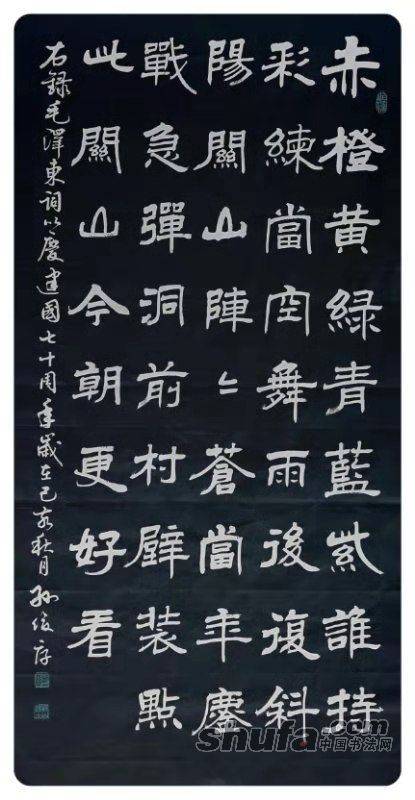 赤橙黄綠青藍紫誰持
彩練當空舞雨後復斜
陽關山陣〻蒼當年鏖
戰急彈洞前村壁裝點
此關山今朝更好看
右錄毛澤東詞以慶建國七十周年歲在己亥秋月孫俊存
shufa.com
中国书法网